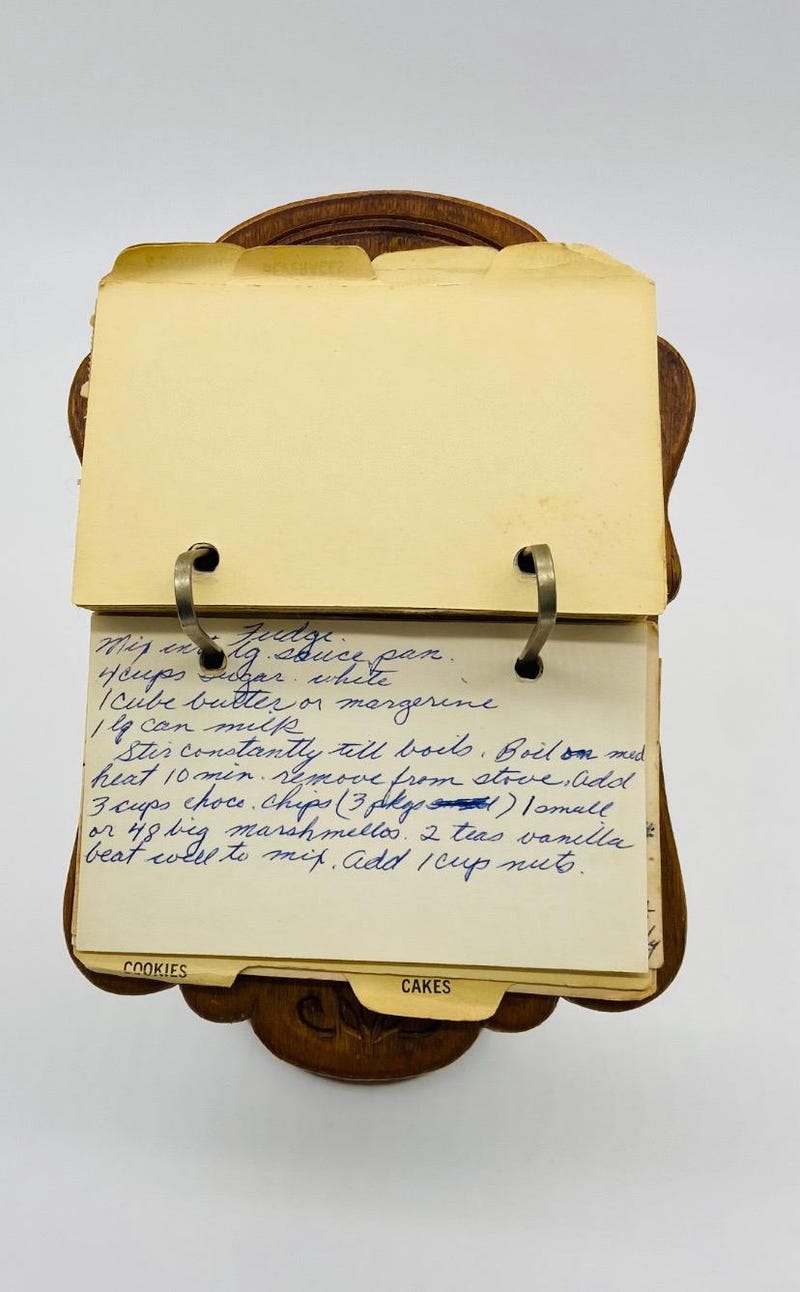 Fudge.
Mix in lg. sauce pan.
4 cups sugar. white
1 cube butter or margerine
1 lg can milk
Stir constantly till boils. Boil on med
heat 10 min. remove from stove. Add
3 cups choc. chips (3 pkgs) 1 small
or 48 big marshmellos. 2 teas vanilla
beat well to mix. Add 1 cup nuts.
COOKIES
CAKES